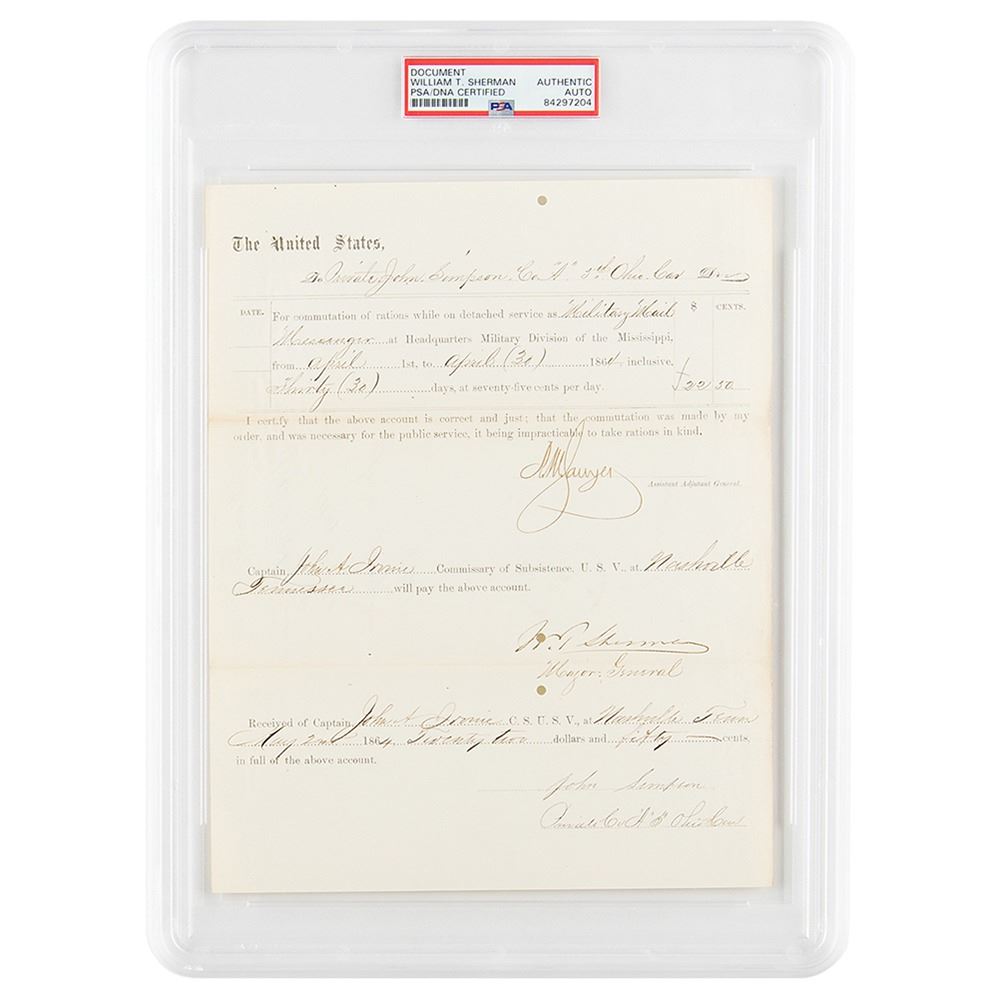 DOCUMENT
WILLIAM T. SHERMAN AUTHENTIC
PSA/DNA CERTIFIED AUTO
PSA 84297204
The United States,
To Private John Simpson Co "A" 3rd Ohio Cav Dr
DATE. For commutation of rations while on detached service as Military Mail $ CENTS.
Messanger at Headquarters Military Division of the Mississippi,
from April 1st, to April (30) 1864, inclusive,
Thirty (30) days, at seventy-five cents per day. 22 50
I certify that the above account is correct and just; that the commutation was made by my
order, and was necessary for the public service, it being impracticable to take rations in kind.
Sawyer
Assistant Adjutant General.
Captain John A Irvine Commissary of Subsistence, U. S. V., at Nashville
Tennessee will pay the above account.
W. T. Sherman
Major General
Received of Captain John A Irvine C. S. U. S. V., at Nashville Tenn
May 2nd 1864 Twenty two dollars and fifty cents,
in full of the above account.
John Simpson
Private Co "A" 3" Ohio Cav